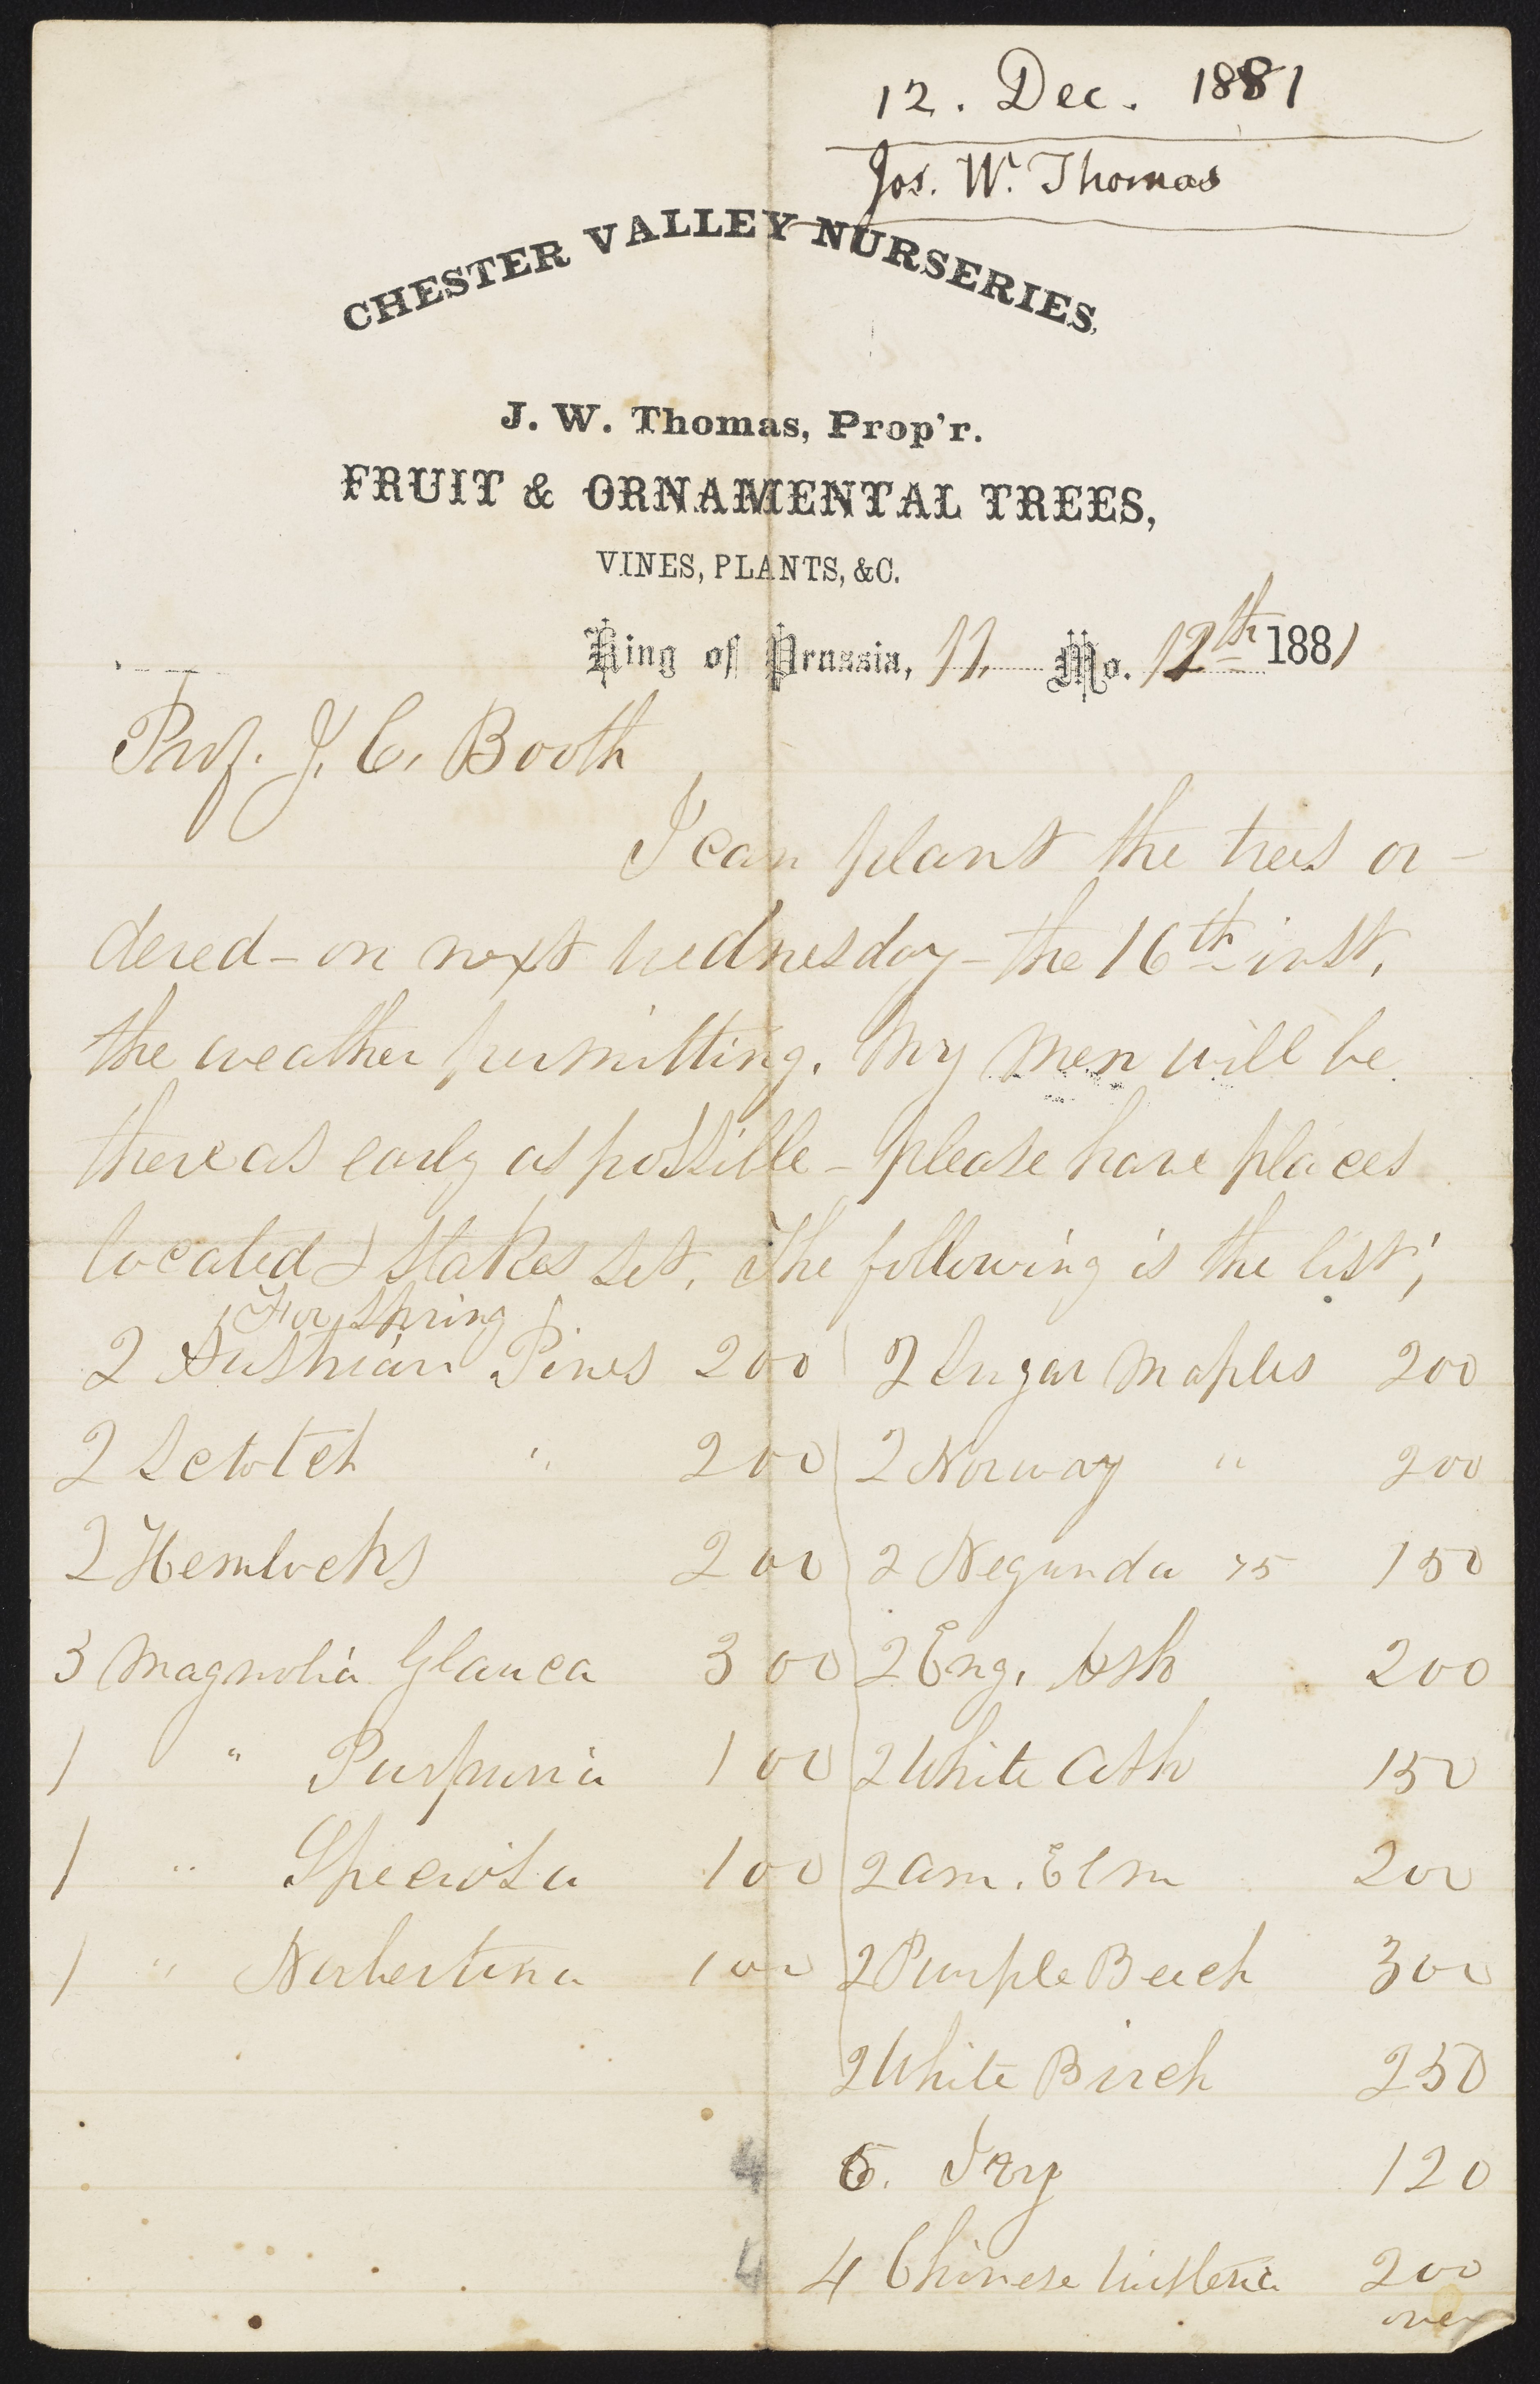 12. Dec. 1881
Jos. W. Thomas
CHESTER VALLEY NURSERIES,
J. W. Thomas, Prop'r.
FRUIT & ORNAMENTAL TREES,
VINES, PLANTS, &C.
King of Prussia, 11. Mo. 12th 1881
Prof. J. C. Booth
I can plant the trees or-
dered - on next Wednesday - the 16th inst,
the weather permitting. My men will be
there as early as possible - please have places
located & stakes set. The following is the list;
For Spring
2 Austrian Pines 200
2 Scotch " 200
2 Hemlocks 200
3 Magnolia Glauca 300
1 " Purpuria 100
1 " Speciosa 100
1 " Norbertina 100
2 Sugar Maples 200
2 Norway " 200
2 Negunda 75 150
2 Eng. Ash 200
2 White Ash 150
2 Am. Elm 200
2 Purple Beech 300
2 White Birch 250
4 6. Ivy 120
4 4 Chinese Wisteria 200
over